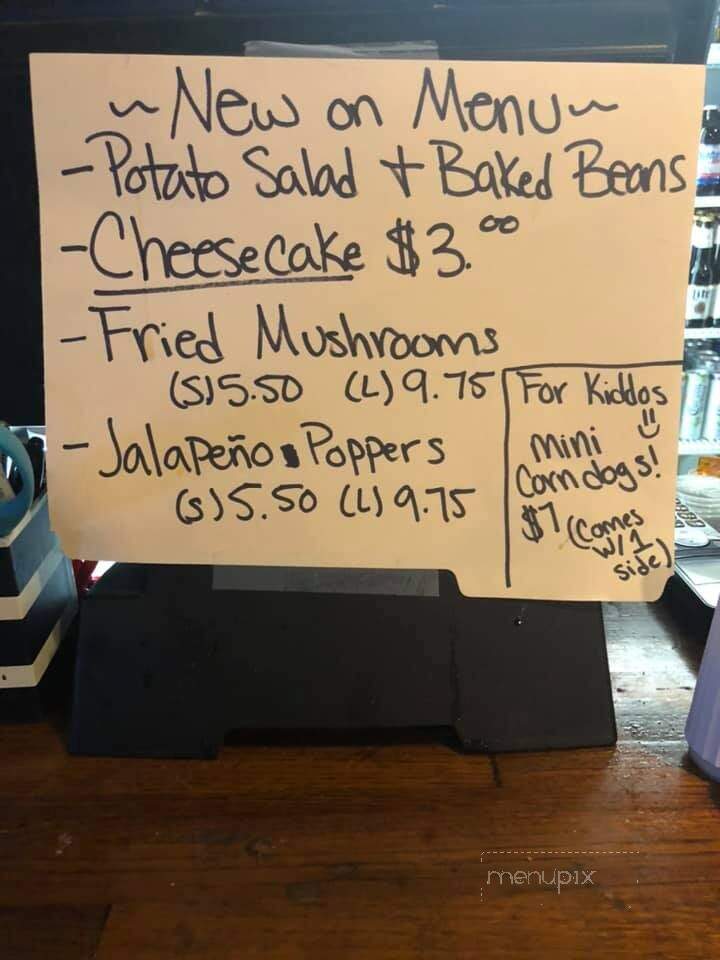 ~ New on Menu ~
- Potato Salad + Baked Beans
- Cheesecake $3.00
- Fried Mushrooms
(S) 5.50 (L) 9.75
- Jalapeño Poppers
(S) 5.50 (L) 9.75
For Kiddos
mini
Corn dogs!
$7 (Comes
w/1
side)
menupix